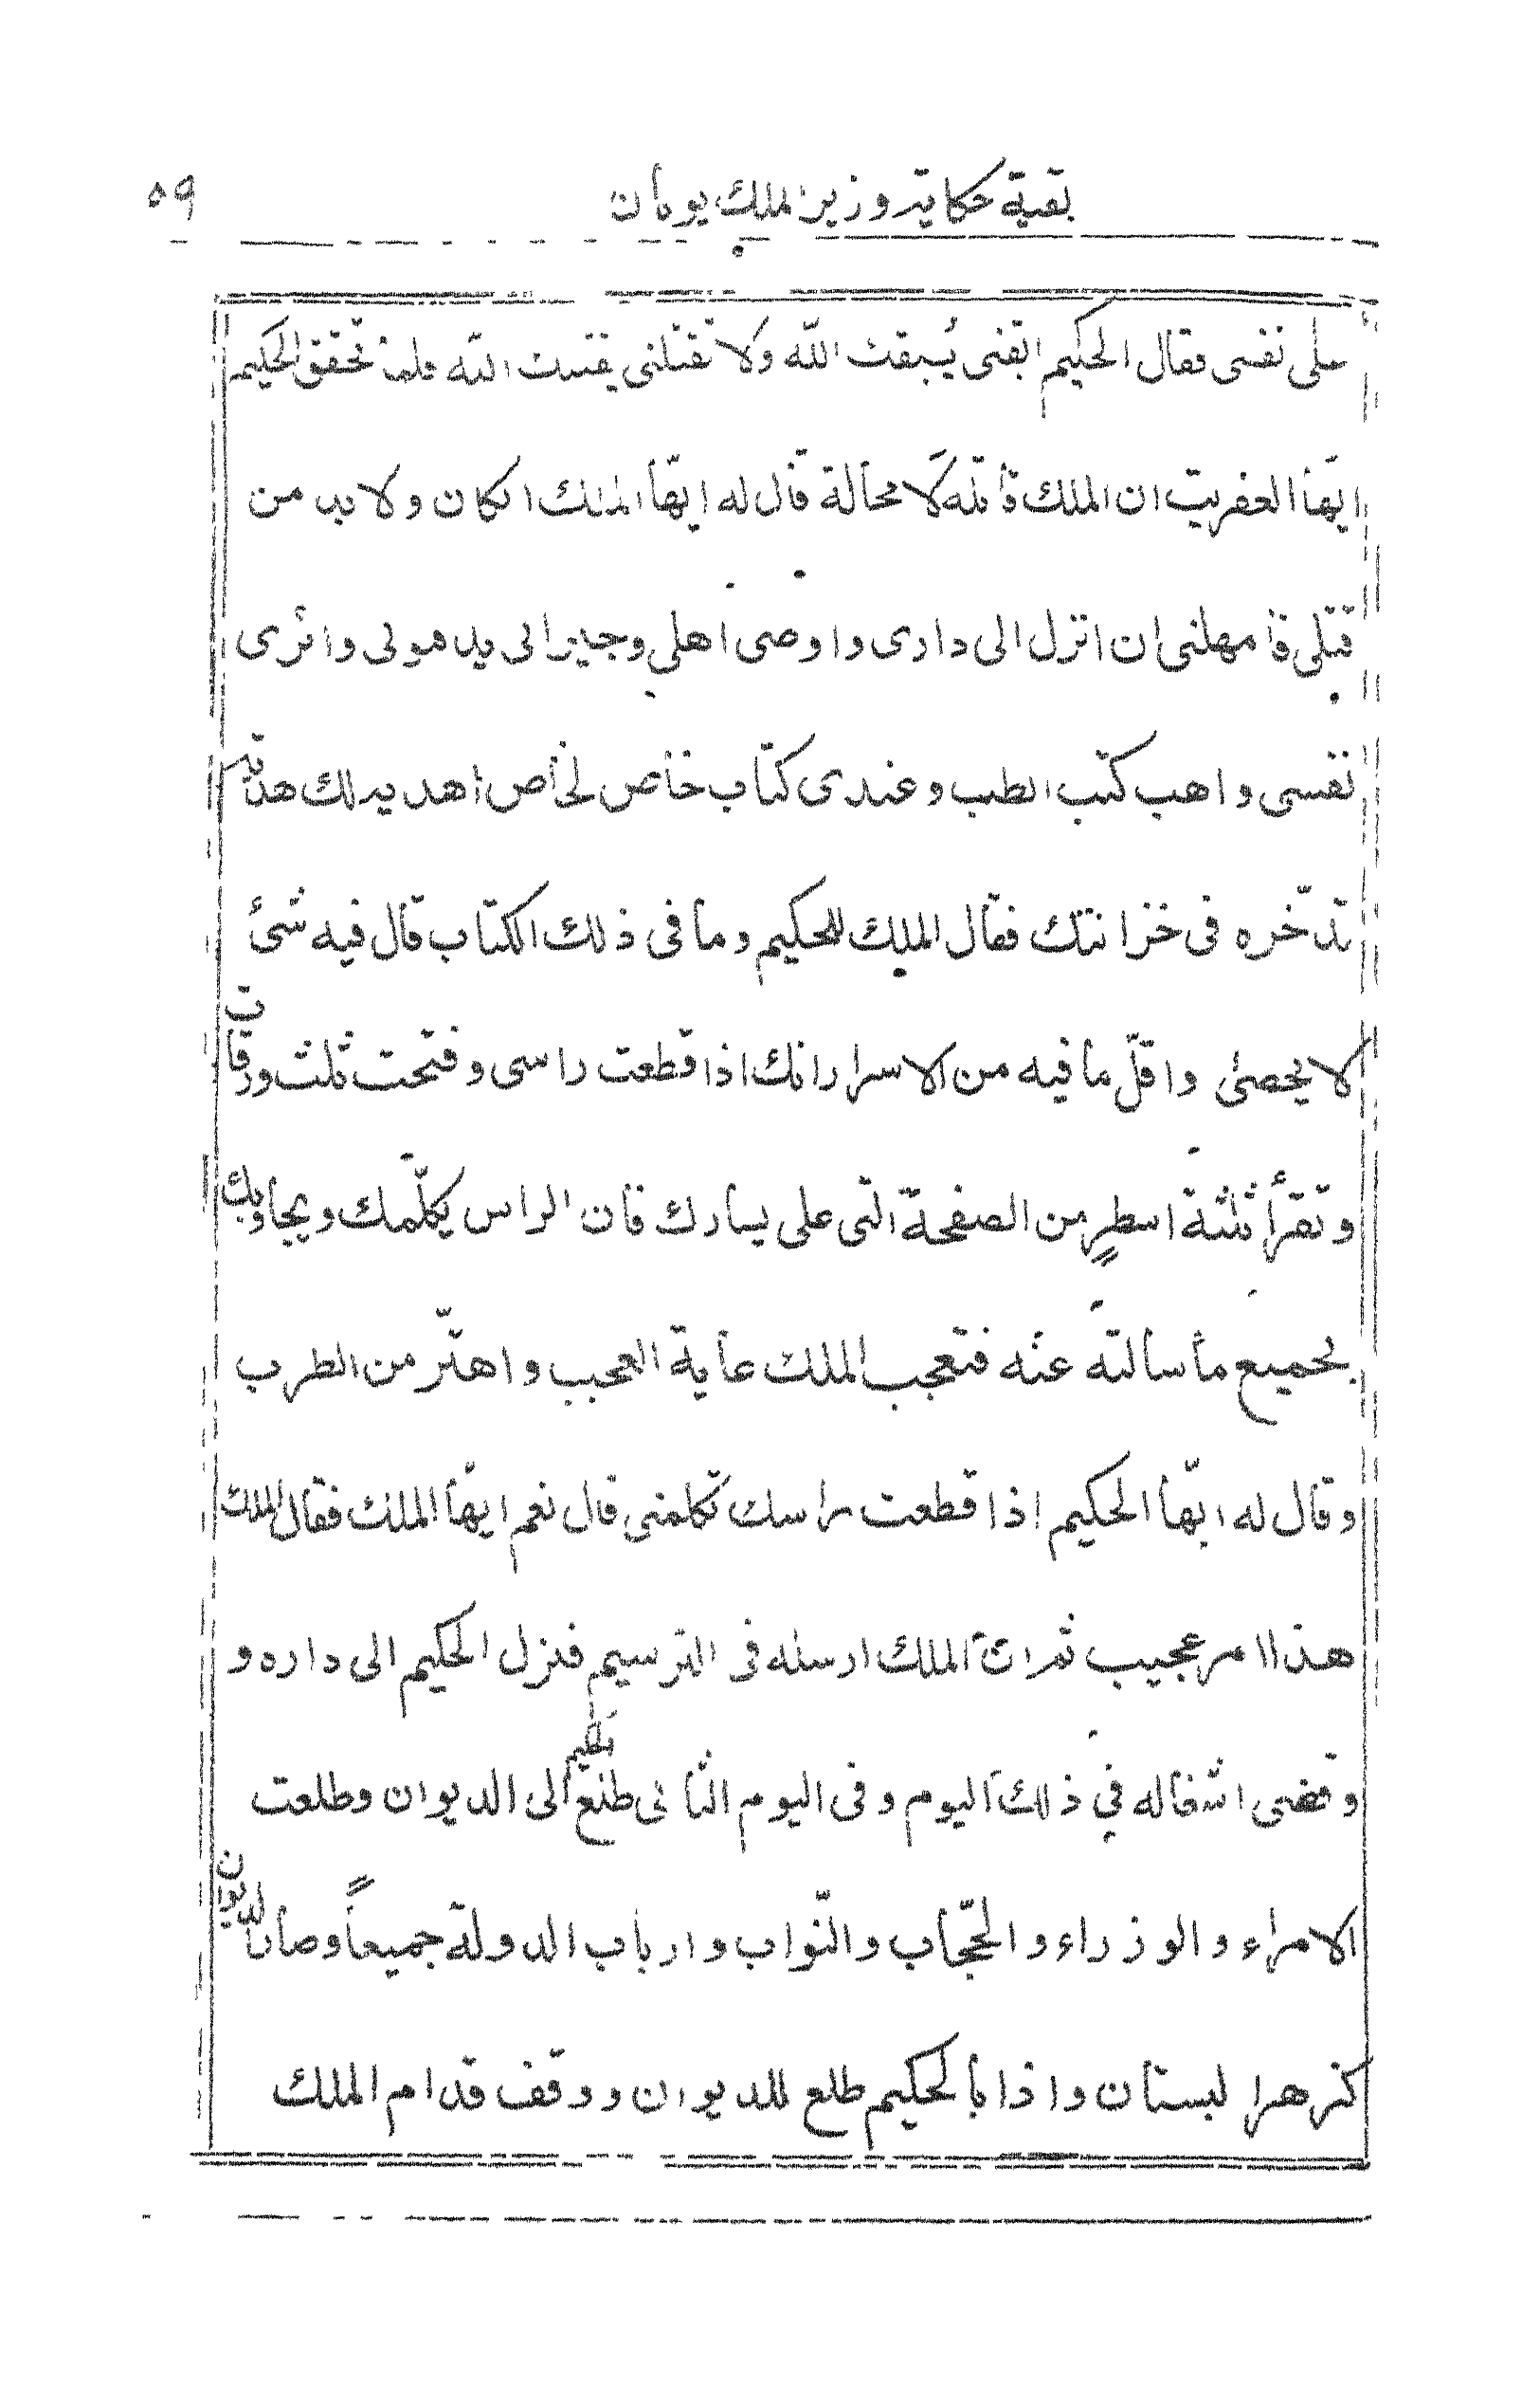 بقية حكاية وزير الملك يونان ٥٩
على نفسى فقال الحكيم ابقنى يُبقك اللّه ولا تقتلنى يقتلك اللّه فلما تحقق الحكيم
ايّها العفريت ان الملك قاتله لا محالة قال له ايّها الملك ان كان ولا بد من
قتلى فامهلنى ان انزل الى دارى واوصى اهلى وجيرانى يدفنونى وابرى
نفسى واهب كتب الطب وعندى كتاب خاص لخاص اهديه لك هدية
تدّخره فى خزانتك فقال الملك للحكيم وما فى ذلك الكتاب قال فيه شئ
لا يحصى واقلّ ما فيه من الاسرار انك اذا قطعت راسى وفتحت ثلث ورقات
وتقرأ ثلثة اسطرٍ من الصفحة التى على يسارك فان الراس يكلّمك ويجاوبك
بجميع ما سالته عنه فتعجب الملك غاية العجب واهتز من الطرب
وقال له ايّها الحكيم اذا قطعت راسك تكلمنى قال نعم ايّها الملك فقال الملك
هذا امر عجيب ثم ان الملك ارسله فى الترسيم فنزل الحكيم الى داره و
قضى اشغاله في ذلك اليوم وفى اليوم الثانى طلع الحكيم الى الديوان وطلعت
الامراء والوزراء والحجّاب والنّواب وارباب الدولة جميعاً وصار الديوان
كزهر البستان واذا بالحكيم طلع للديوان ووقف قدام الملك